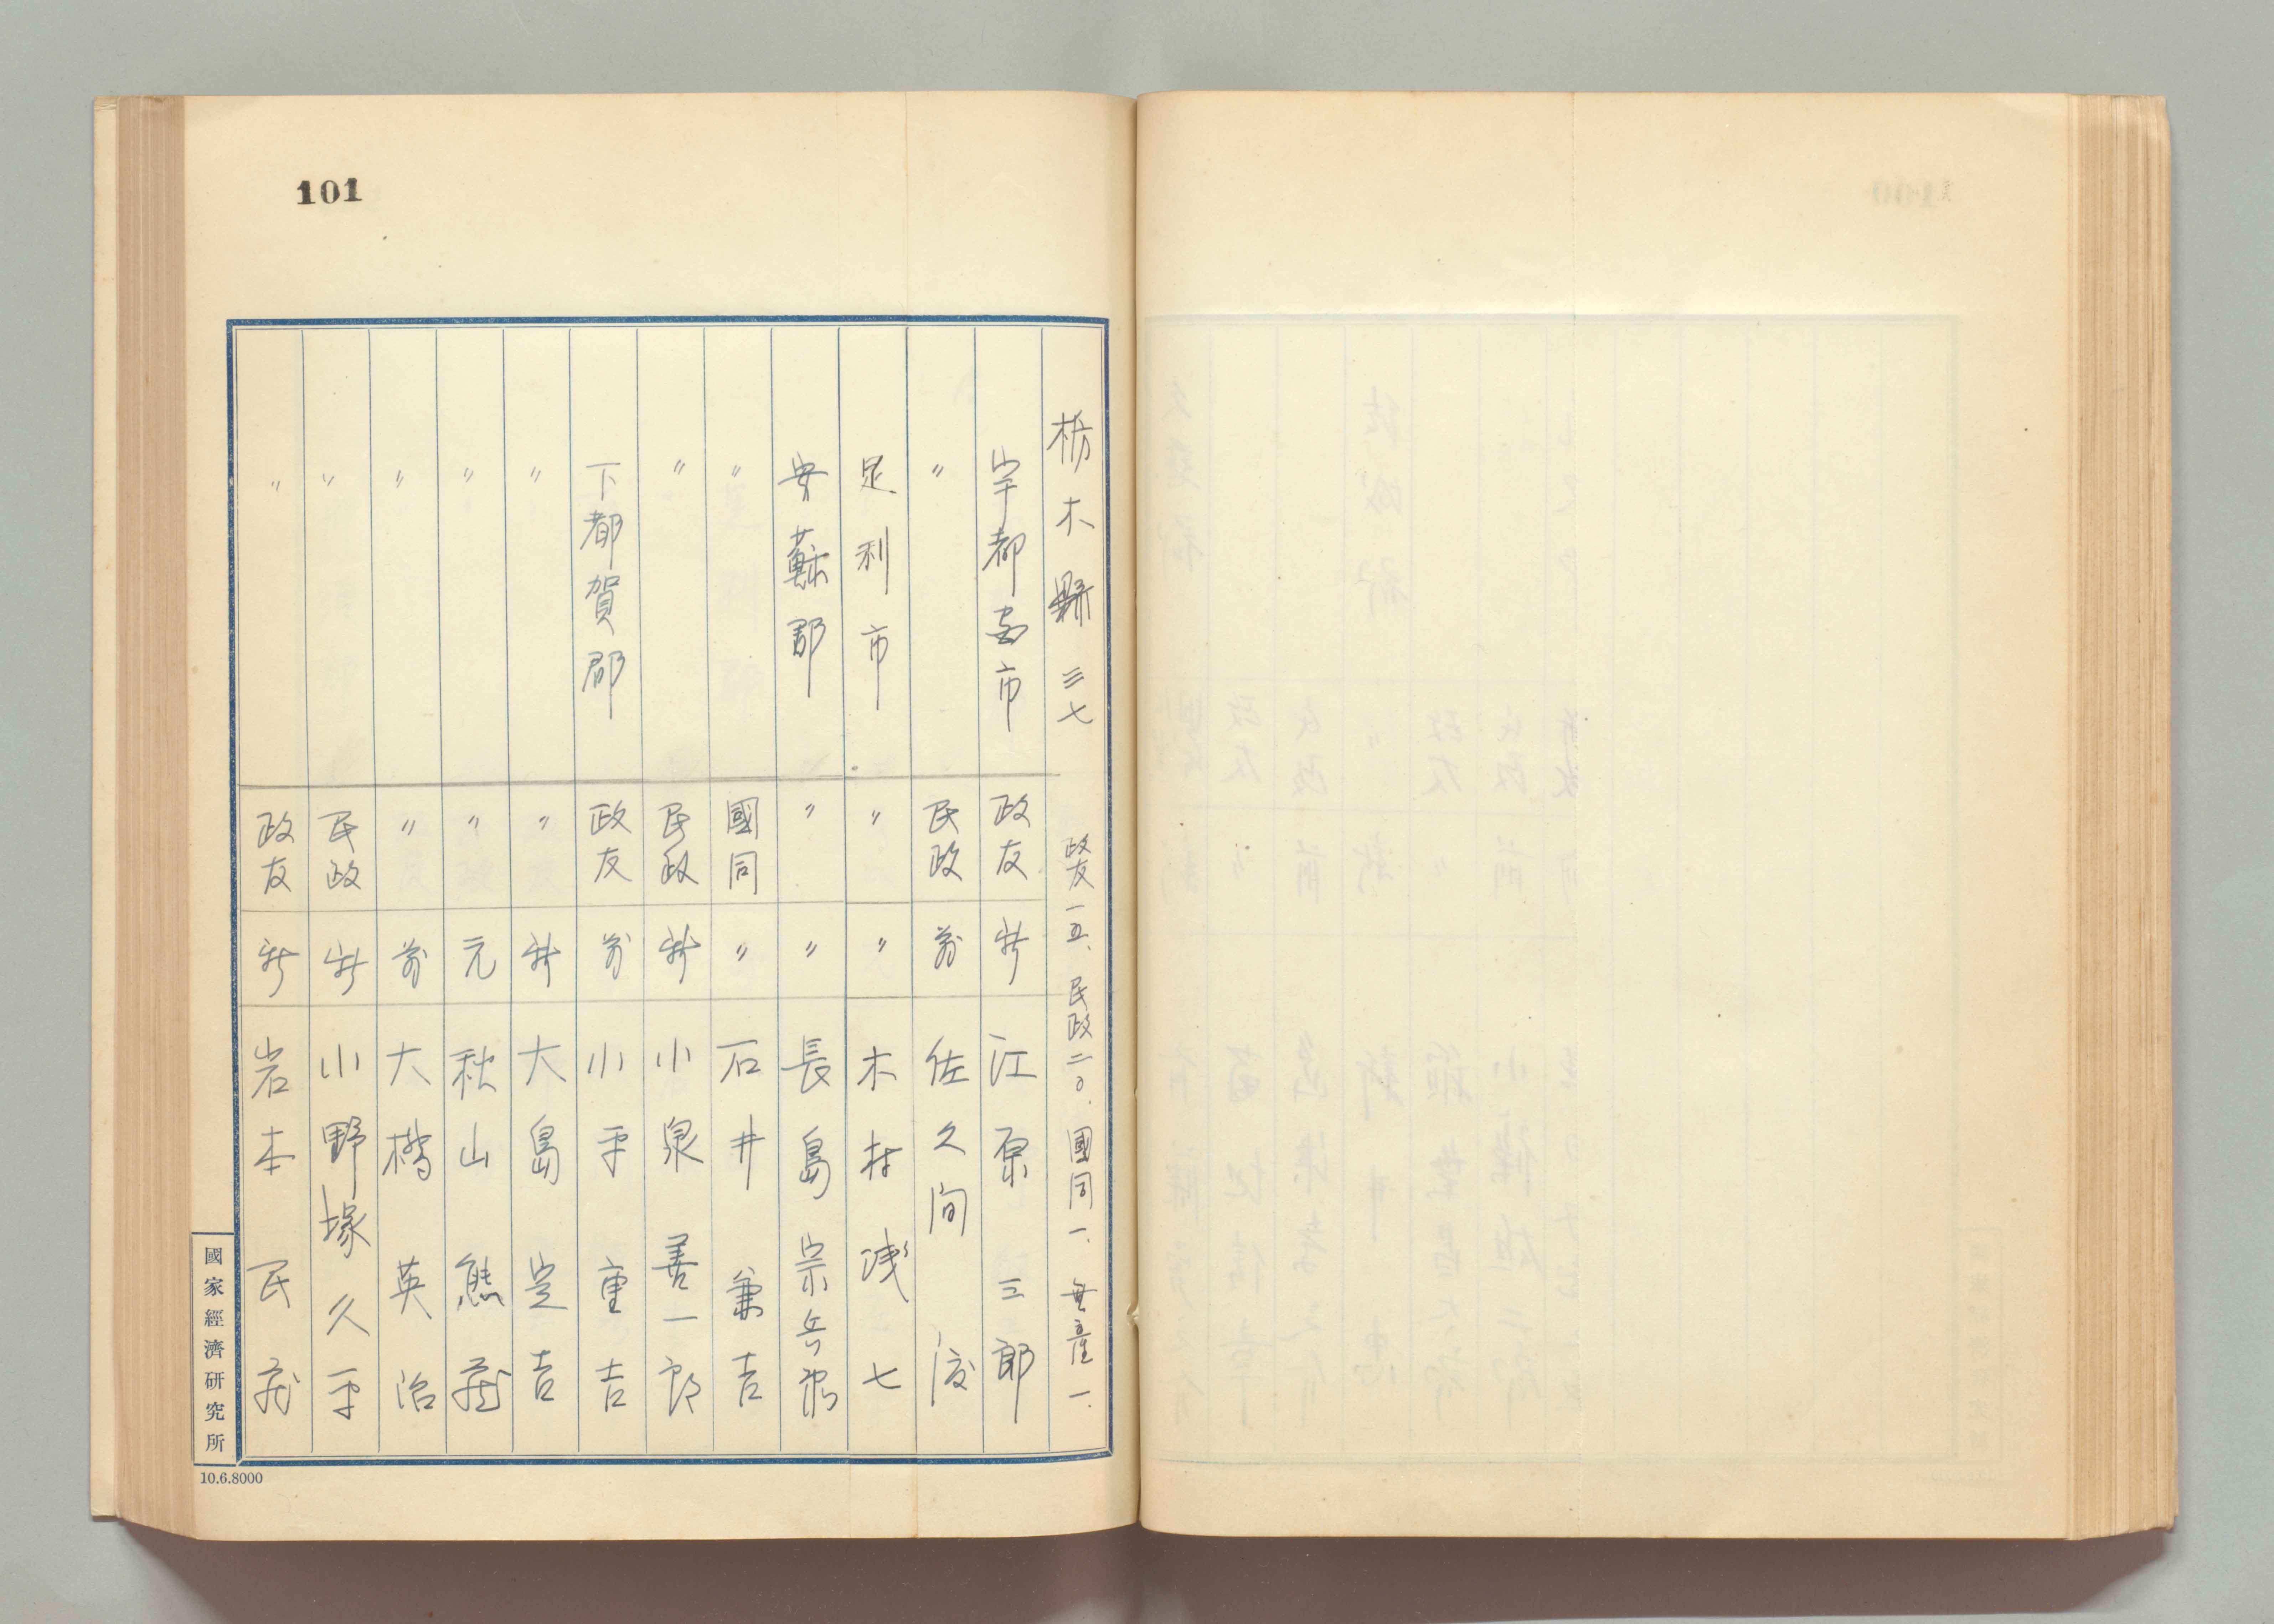 101
栃木縣 三七 政友一五、民政二〇、國同一、無産一、
宇都宮市 政友 新 江原 三郎
〃 民政 前 佐久間 渡
足利市 〃 〃 木村 浅七
安蘇郡 〃 〃 長島 宗兵衛
〃 國同 〃 石井 兼吉
〃 民政 新 小泉 善一郎
下都賀郡 政友 前 小平 重吉
〃 〃 新 大島 定吉
〃 〃 元 秋山 熊藏
〃 〃 前 大橋 英治
〃 民政 新 小野塚 久平
〃 政友 新 岩本 民藏
國家經濟研究所
10.6.8000